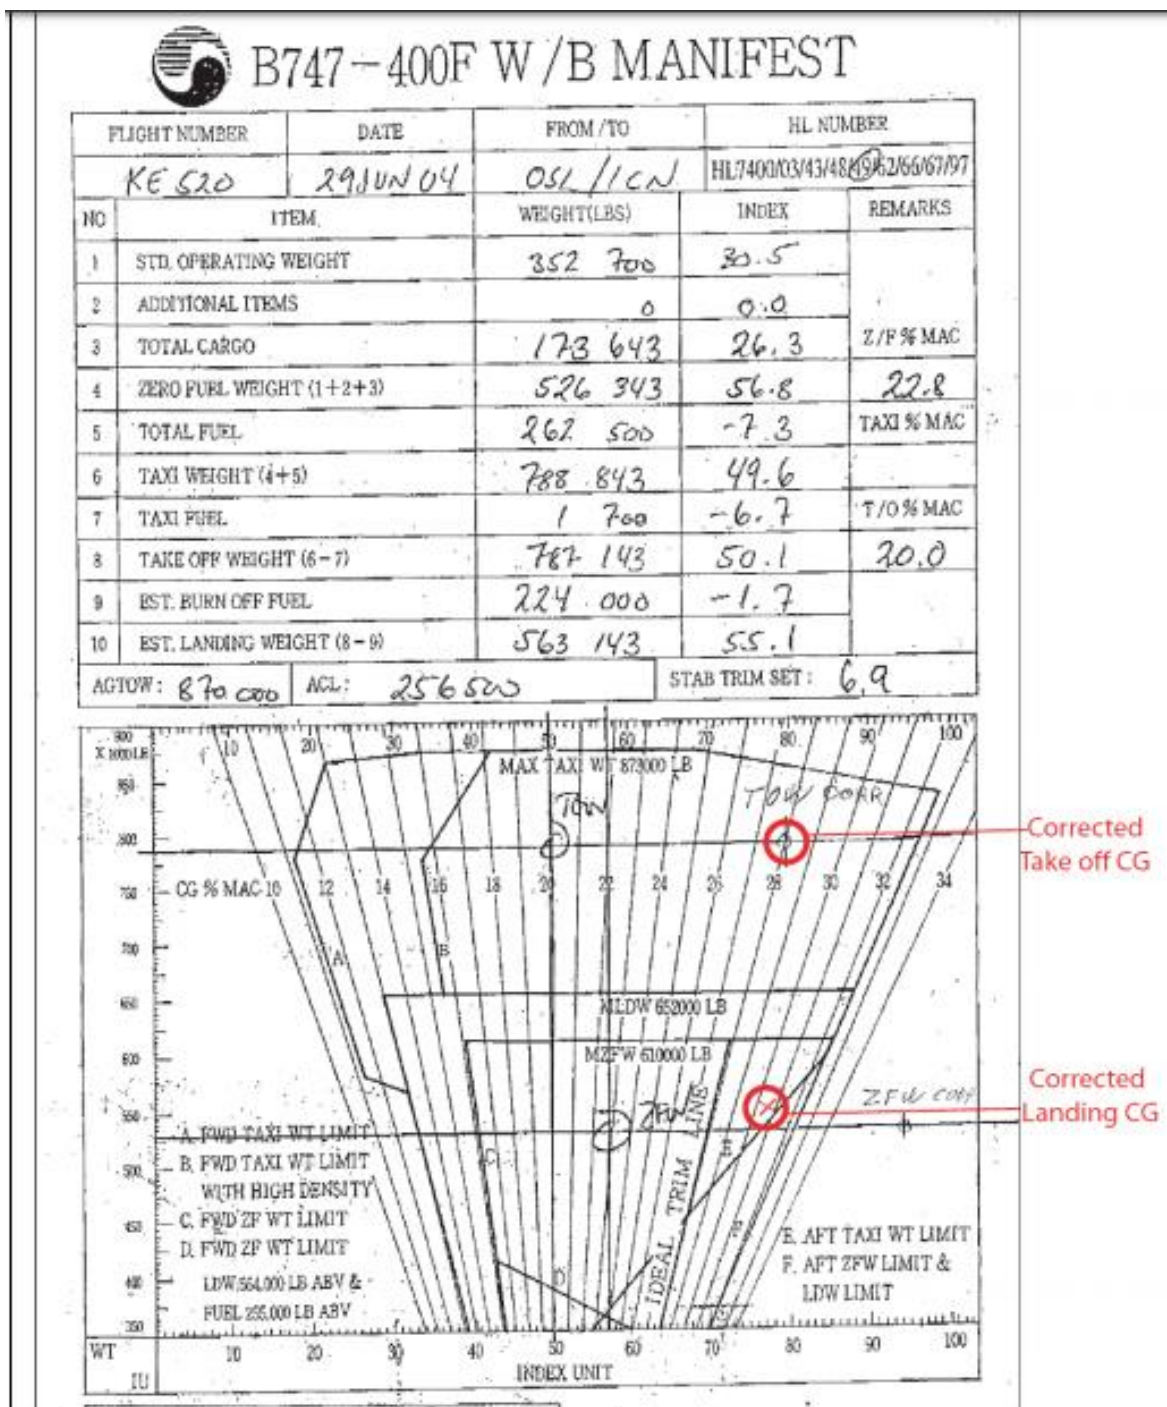 B747-400F W/B MANIFEST
FLIGHT NUMBER DATE FROM/TO HL NUMBER
KE 520 29JUN04 OSL/ICN HL7400/03/43/48/49/62/66/67/97
NO ITEM. WEIGHT(LBS) INDEX REMARKS
1 STD. OPERATING WEIGHT 352 700 30.5
2 ADDITIONAL ITEMS 0 0.0
3 TOTAL CARGO 173 643 26.3 Z/F % MAC
4 ZERO FUEL WEIGHT (1+2+3) 526 343 56.8 22.8
5 TOTAL FUEL 262 500 -7.3 TAXI % MAC
6 TAXI WEIGHT (4+5) 788 843 49.6
7 TAXI FUEL 1 700 -6.7 T/O % MAC
8 TAKE OFF WEIGHT (6-7) 787 143 50.1 20.0
9 EST. BURN OFF FUEL 224 000 -1.7
10 EST. LANDING WEIGHT (8-9) 563 143 55.1
AGTOW: 870 000 ACL: 256500 STAB TRIM SET: 6.9
900 10 20 30 40 50 60 70 80 90 100
X 1000LB
MAX TAXI WT 873000 LB
850
TOW TOW CORR
800
Corrected
Take off CG
750 CG % MAC 10 12 14 16 18 20 22 24 26 28 30 32 34
700 A B
650 MLDW 652000 LB
600 MZFW 610000 LB
Corrected
Landing CG
ZFW
550
A. FWD TAXI WT LIMIT
B. FWD TAXI WT LIMIT
500 WITH HIGH DENSITY
C
C. FWD ZF WT LIMIT
450
D. FWD ZF WT LIMIT
LDW 564,000 LB ABV &
400
FUEL 255,000 LB ABV
350
D
IDEAL TRIM LINE
E. AFT TAXI WT LIMIT
F. AFT ZFW LIMIT &
LDW LIMIT
WT 10 20 30 40 50 60 70 80 90 100
IU INDEX UNIT